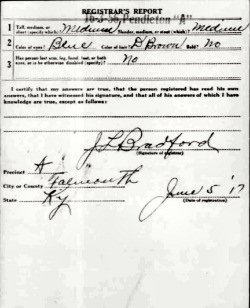 REGISTRAR'S REPORT
16-3-36, Pendleton "A"
1 Tall, medium, or short (specify which)? Medium Slender, medium, or stout (which)? Medium
2 Color of eyes? Blue Color of hair? D Brown Bald? No
3 Has person lost arm, leg, hand, foot, or both eyes, or is he otherwise disabled (specify)? No
I certify that my answers are true, that the person registered has read his own answers, that I have witnessed his signature, and that all of his answers of which I have knowledge are true, except as follows:
J L Bradford
(Signature of registrar)
Precinct A
City or County Falmouth
State Ky
June 5 '17
(Date of registration)